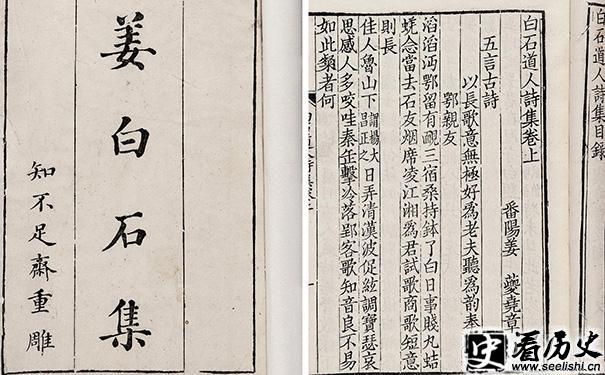 姜白石集
知不足齋重雕
白石道人詩集目錄
白石道人詩集卷上
番陽姜 夔堯章
五言古詩
以長歌意無極好為老夫聽為韵奉
鄂親友
滔滔沔鄂留有靦三宿桑持鉢了白日事賤丸蛣
蜣念當去石友烟席凌江湘為君試歌商歌短意
則長
佳人魯山下謂楊大昌正之日弄清漢波促絃調寶瑟哀
思感人多咬哇秦缶擊冷落郢客歌知音良不易
如此類者何
史看历史
www.seelishi.cn